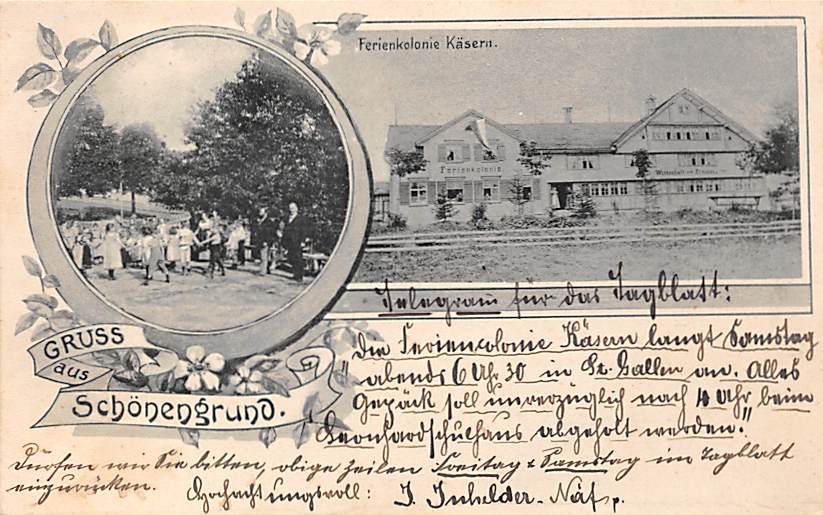 Ferienkolonie Käsern.
Ferienkolonie
Wirtschaft
GRUSS
aus
Schönengrund.
Telegram für das Tagblatt:
"Die Feriencolonie Käsern langt Samstag
abends 6 Uhr 30 in St. Gallen an. Alles
Gepäck soll unverzüglich nach 4 Uhr beim
Leonhardschulhaus abgeholt werden."
Dürfen wir Sie bitten, obige Zeilen Freitag & Samstag im Tagblatt
einzurücken. Hochachtungsvoll: J. Inhelder-Näf